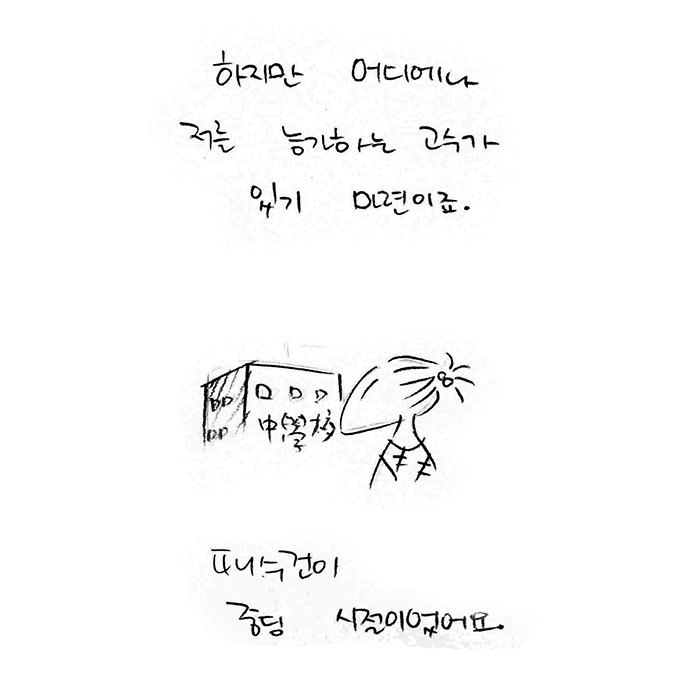 하지만 어디에나
저를 능가하는 고수가
있기 마련이죠.
中學校
피니수건이
중딩 시절이었어요.